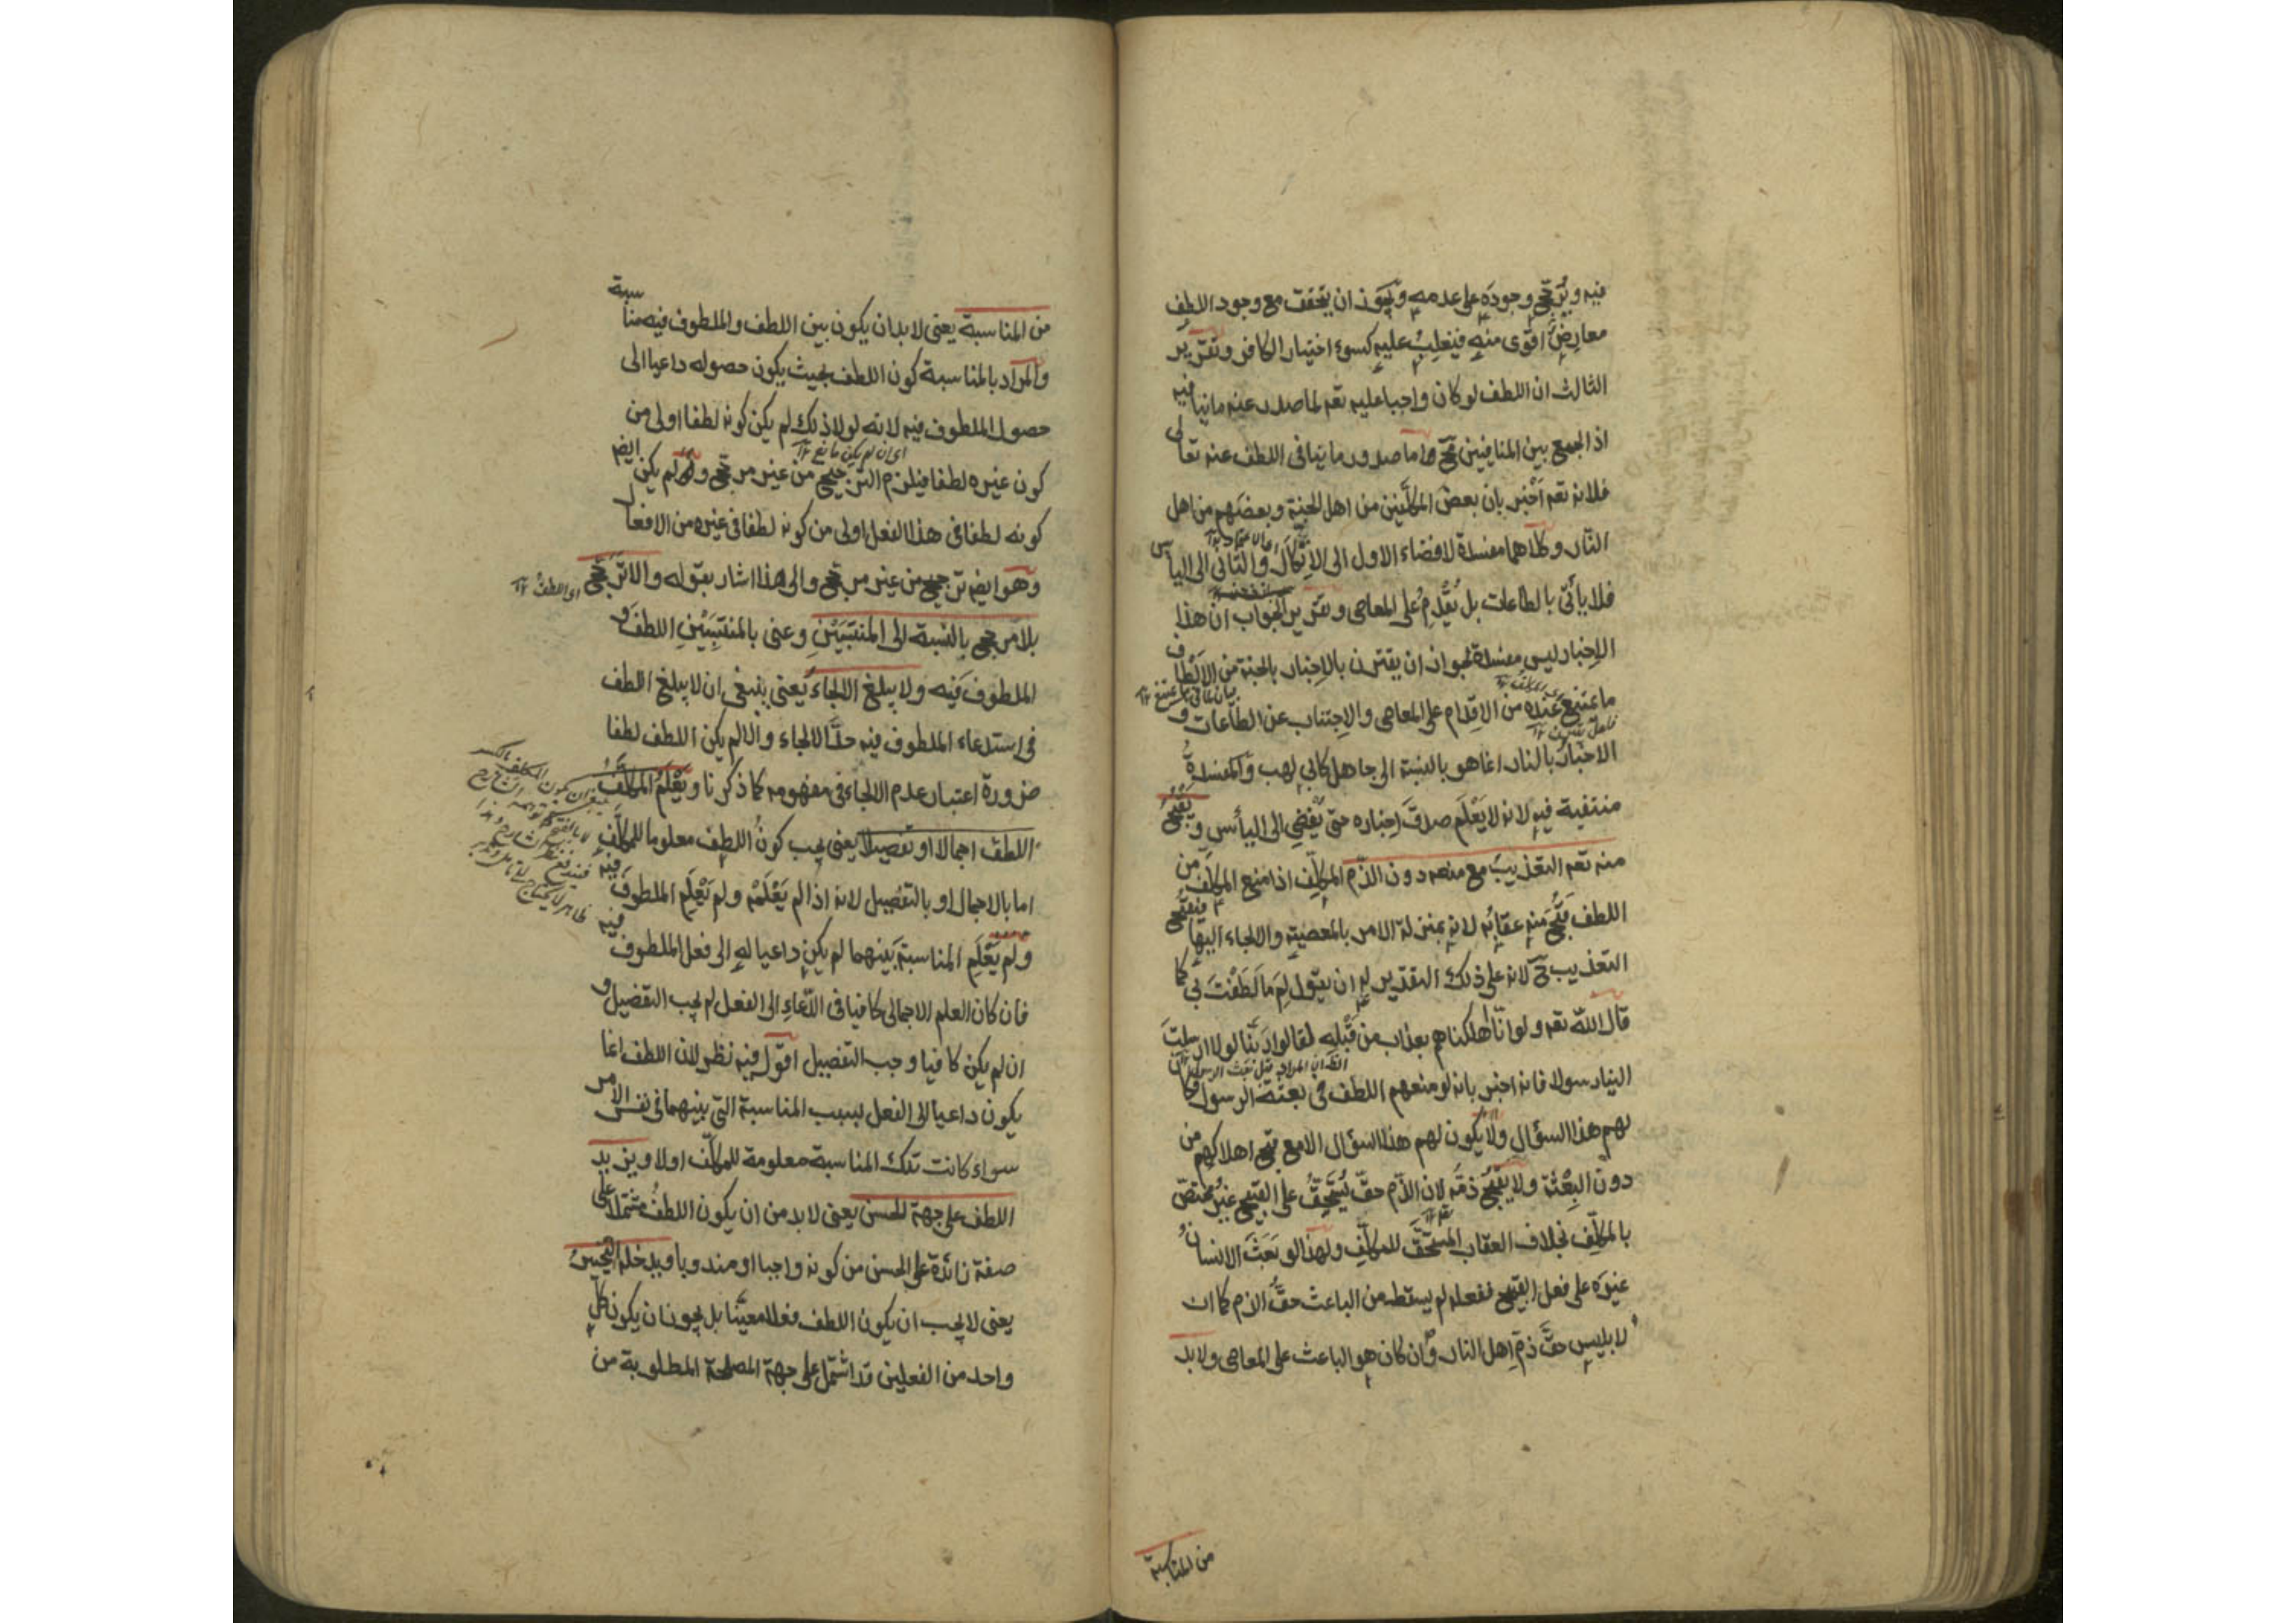 فيه ويُرَجِّح وجودَه على عدمه ويجوز ان يتحقق مع وجود اللطف
معارِضٌ اقوى منه فيغلِبُ عليه كسوء اختيار الكافر وتقرير
الثالث ان اللطف لو كان واجبا عليه تعم لما صدر عنه ما ينافيه
اذ الجمع بين المنافيين مح واما صدور ما ينافى اللطف عنه تعالى
فلانه تعم اَخْبر بان بعض المكلَّفين من اهل الجنة وبعضَهم من اهل
النّار وكلاهما مفسدة لافضاء الاول الى الاِتّكال والثّانى الى اليأس
فلا يأتى بالطاعات بل يُقدِمُ على المعاصى وتقرير الجواب ان هذا
الاِخبار ليس مفسدة لجواز ان يقترن بالاِخبار بالجنة من الالطاف
ما يمتنع عنده من الاِقدام على المعاصى والاِجتناب عن الطاعات و
الاخبار بالنار انما هو بالنسبة الى جاهل كابى لهب والمفسدةُ
منتفية فيه لانه لا يَعْلَم صدقَ اِخباره حتى يُفْضِى الى اليأس ويَقْبُحُ
منه تعم التعذيبُ مع منعه دون الذّم المكلِّف اذا منع المكلَّف من
اللطف قَبُح منه عقابُه لانه بمنزلة الامر بالمعصية والالجاء اليها فيقبُح
التعذيب ح لانه على ذلك التقدير له ان يقول لِمَ مَا لَطَفْتَ بى كما
قال اللّه تعم ولو انّا اهلكناهم بعذاب من قَبْلِه لقالوا رَبَّنا لولا ارسلتَ
الينا رسولا فانه اخبر بانه لو منعهم اللطف فى بعثة الرسول لكان
لهم هذا السؤال ولا يكون لهم هذا السؤال الا مع قبح اهلاكهم من
دون البِعْثة ولا يقبُح ذمّه لان الذّم حقّ يُستَحَقُّ على القبيح غيرُ مختصّ
بالمكلِّف بخلاف العقاب المستحَقّ للمكلِّف ولهذا لو بَعَثَ الانسانُ
غيرَه على فعل القبيح ففعله لم يسقط من الباعث حقُّ الذم كما ان
لابليس حقَّ ذمّ اهل النار وان كان هو الباعث على المعاصى ولا بد
من المناسبة
من المناسبة يعنى لا بد ان يكون بين اللطف والملطوف فيه مناسبة
والمراد بالمناسبة كون اللطف بحيث يكون حصوله داعيا الى
حصول الملطوف فيه لانه لولا ذلك لم يكن كونه لطفا اولى من
اى ان لم يكن مانع ١٢
كون غيره لطفا فيلزم الترجيح من غير مرجّح ولم يكن ايضم
كونه لطفا فى هذا الفعل اولى من كونه لطفا فى غيره من الافعال
وهو ايضم ترجيح من غير مرجّح والى هذا اشار بقوله والا تَرَجَّح
اى اللطفُ ١٢
بلا مرجح بالنسبة الى المنتسِبَيْن وعنى بالمنتسِبَيْنِ اللطف و
الملطوف فيه ولا يبلغ الالجاءَ يعنى ينبغى ان لا يبلغ اللطف
فى استدعاء الملطوف فيه حدَّ الالجاء والا لم يكن اللطف لطفا
ضرورة اعتبار عدم الالجاء فى مفهومه كما ذكرنا ويَعْلَمُ المكلَّفُ
اللطف اجمالا او تفصيلا يعنى يجب كونُ اللطف معلوما للمكلَّفِ
اما بالاجمال او بالتفصيل لانه اذا لم يَعْلَمْه ولم يَعْلَمِ الملطوفَ فيه
ولم يَعْلَمِ المناسبةَ بَينهما لم يكن داعيا له الى فعل الملطوف فيه
فان كان العلم الاجمالى كافيا فى الدّعاءِ الى الفعل لم يجب التفصيل و
ان لم يكن كافيا وجب التفصيل اقول فيه نظر لان اللطف انما
يكون داعيا الى الفعل بسبب المناسبة التى بينهما فى نفس الامر
سواء كانت تلك المناسبة معلومة للمكلّف اولا ويزيد
اللطف على جهة الحسن يعنى لا بد من ان يكون اللطفُ مشتملا على
صفة زائدة على الحسن من كونه واجبا او مندوبا ويدخله التخييرُ
يعنى لا يجب ان يكون اللطف فعلا معيّنا بل يجوز ان يكون كلّ
واحد من الفعلين قد اشتمل على جهة المصلحة المطلوبة من